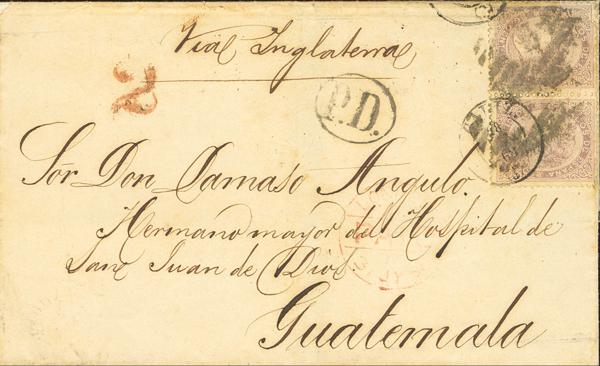 Via Inglaterra
2
P.D.
Sór Don Damaso Angulo.
Hermano mayor del Hospital de
San Juan de Dios
Guatemala